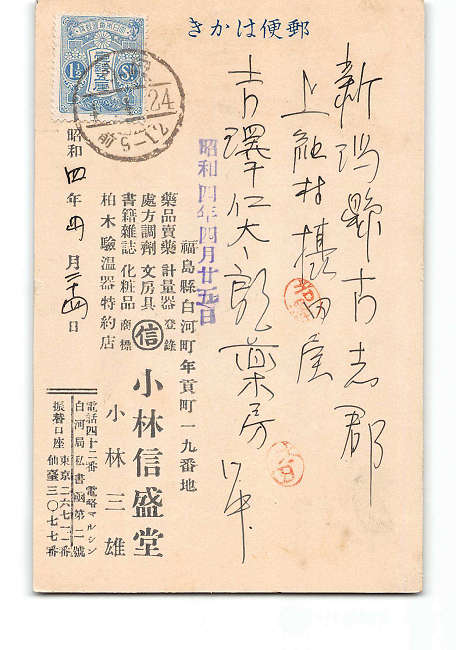 郵便はかき
新潟縣古志郡
上組村摂田屋
吉澤仁太郎薬房 御中
昭和四年四月廿五日
福島縣白河町年貢町一九番地
藥品賣藥 計量器 登錄
處方調劑 文房具
書籍雜誌 化粧品 商標
柏木驗溫器特約店
信
小林信盛堂
小林三雄
電話四十二番 電略マルシン
白河局私書凾第二號
振替口座 東京二六七一二番
仙臺三〇七七番
昭和四年四月二十四日
1½ Sn